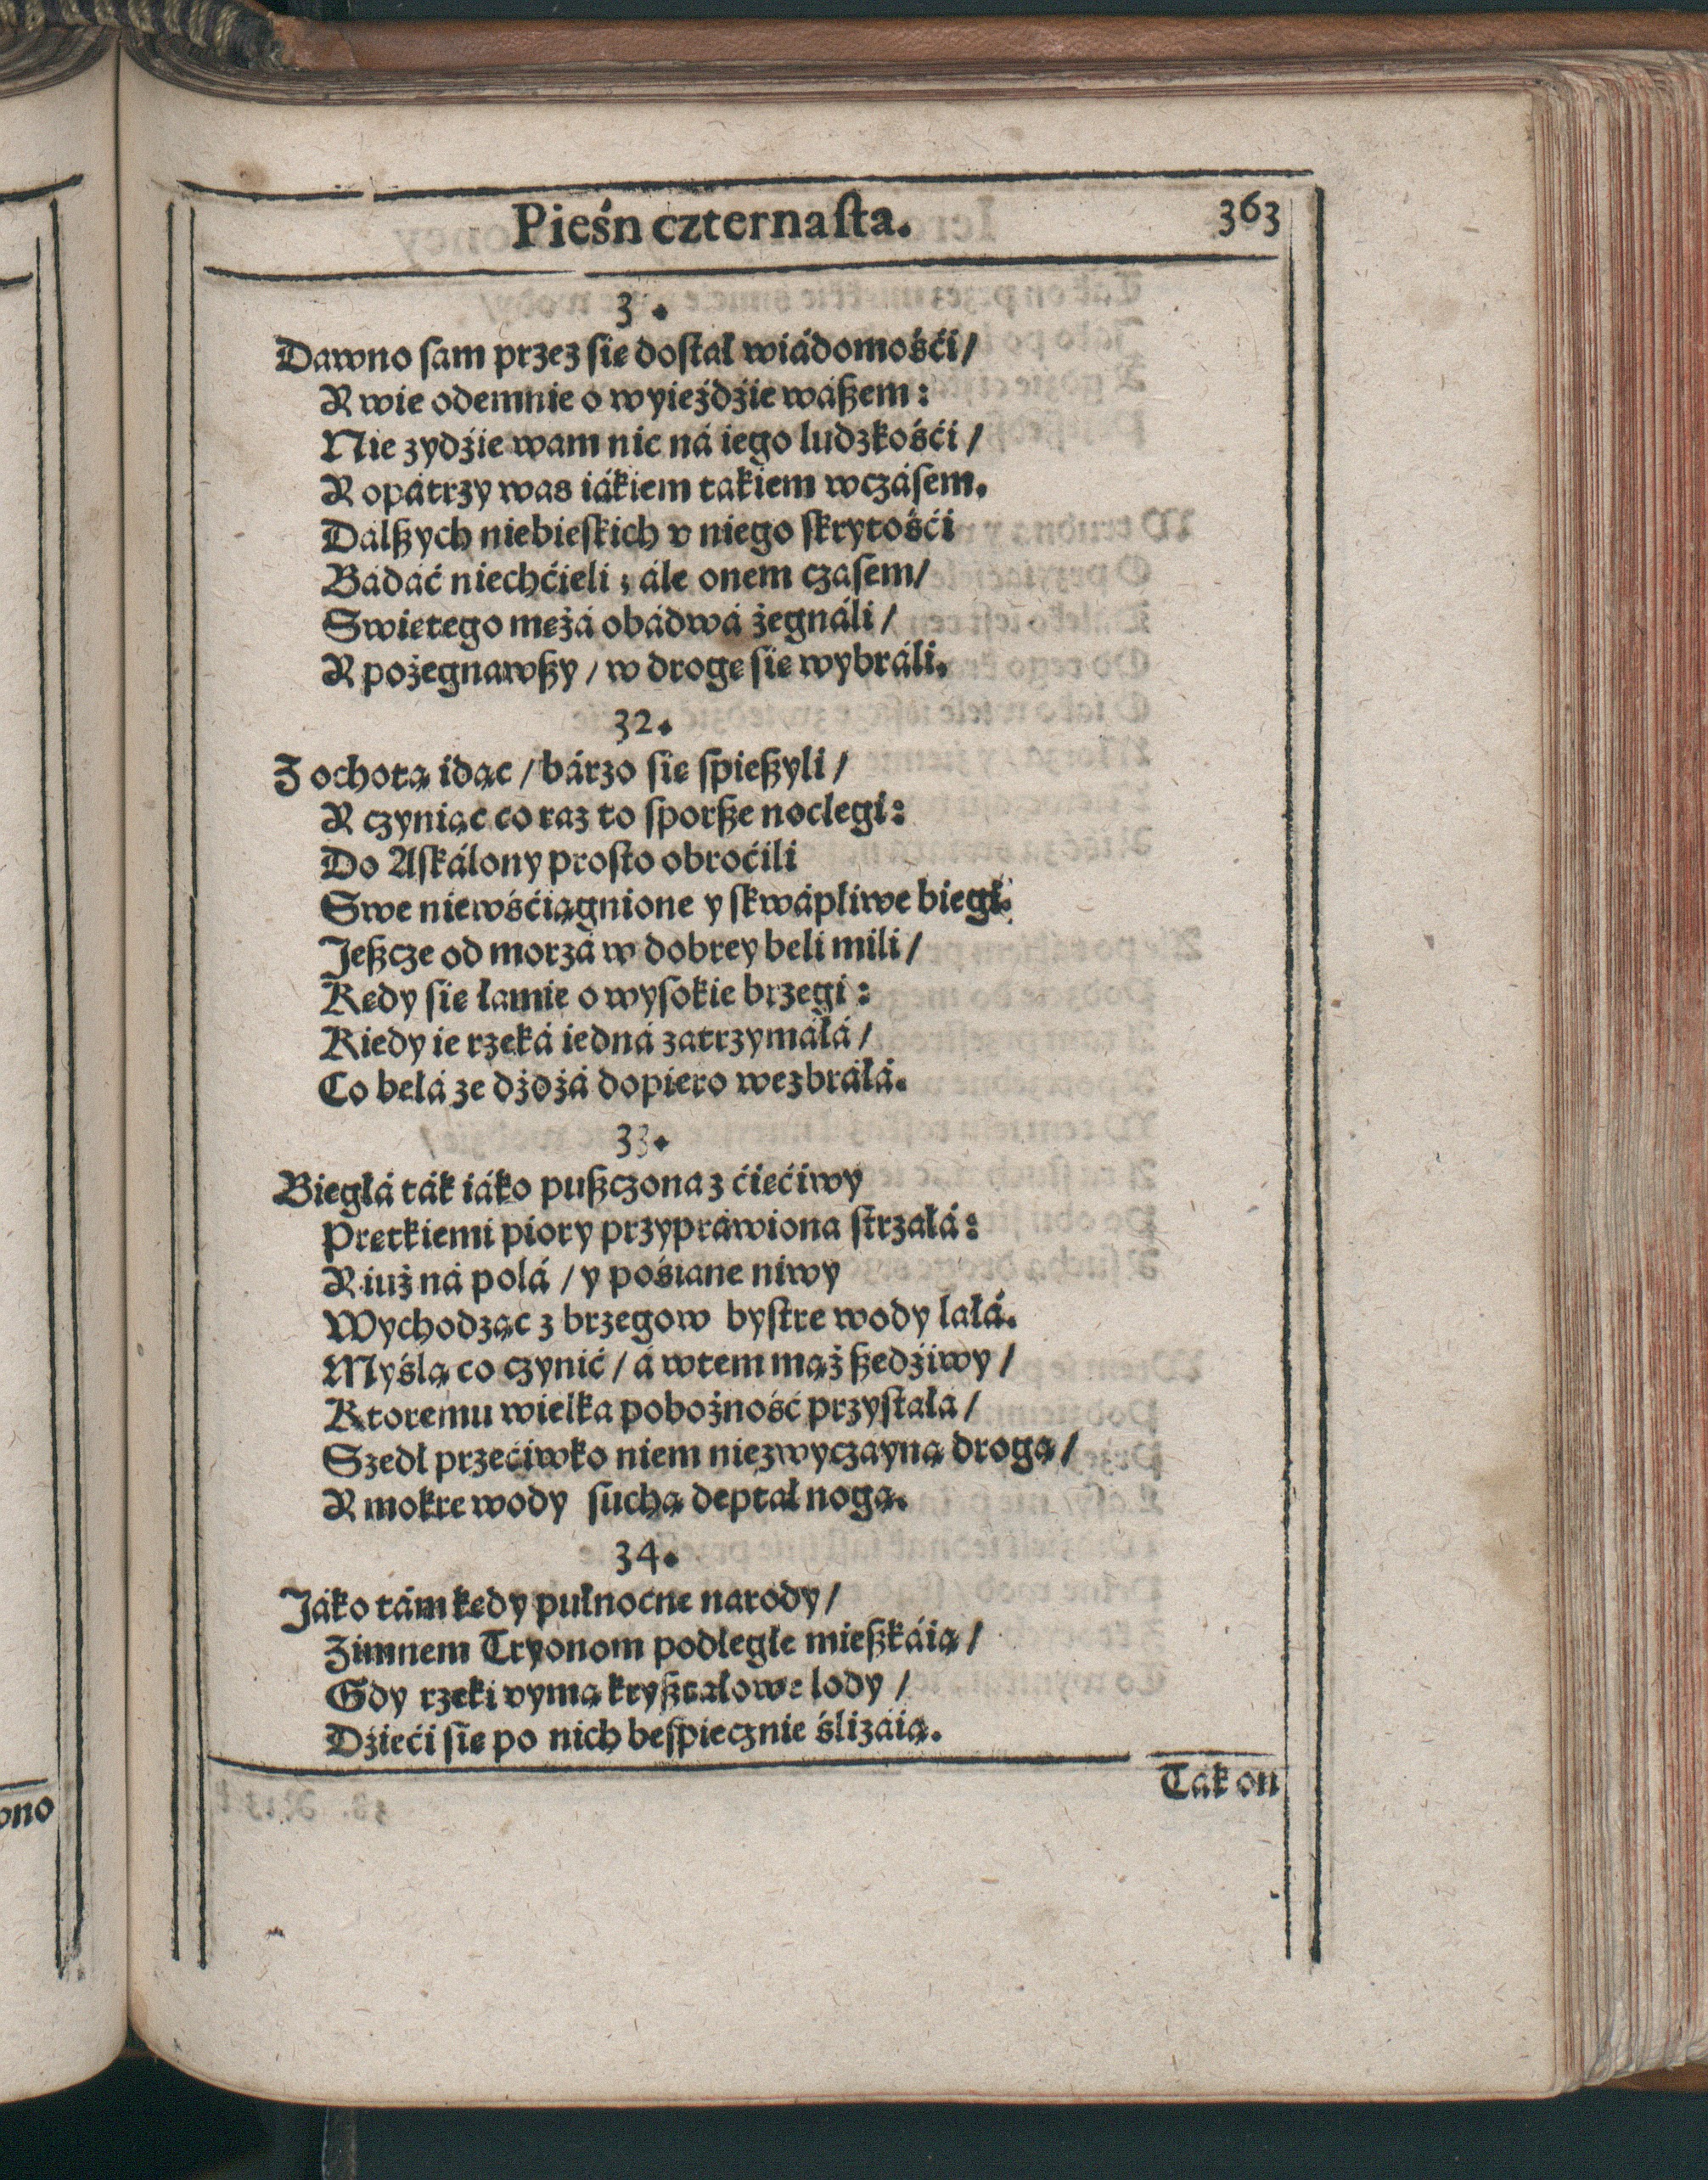 Pieśn czternaſta.
363
3 .
Dawno ſam przez ſie doſtał wiádomośći/
Y wie odemnie o wyieźdźie wáßem:
Nie zydźie wam nic ná iego ludzkośći/
Y opátrzy was iákiem takiem wczáſem.
Dálßych niebieſkich v niego ſkrytośći
Bádáć niechćieli; ále onem czaſem/
Swietego mężá obádwá żegnáli/
Y pożegnawßy/ w drogę ſie wybráli.
32.
Z ochotą idąc/ bárzo ſie ſpießyli/
Y czyniąc co raz to ſporße noclegi:
Do Aſkálony proſto obroćili
Swe niewśćiągnione y ſkwápliwe biegi.
Jeßcze od morzá w dobrey beli mili/
Kędy ſie łamie o wyſokie brzegi:
Kiedy ie rzeká iedná zatrzymáłá/
Co bełá ze dżdżá dopiero wezbráłá.
33.
Biegłá ták iáko pußczona z ćiećiwy
Prętkiemi piory przypráwiona ſtrzałá:
Y iuż ná polá/ y pośiane niwy
Wychodząc z brzegow byſtre wody lałá.
Myślą co czynić/ á wtem mąż ßedźiwy/
Ktoremu wielka pobożność przyſtałá/
Szedł przećiwko niem niezwyczayną drogą/
Y mokre wody ſuchą deptał nogą.
34.
Jáko tám kędy pułnocne narody/
Zimnem Tryonom podległe mießkáią/
Gdy rzeki vymą kryßtałowe lody/
Dźieći ſie po nich beſpiecznie ślizáią.
Ták on